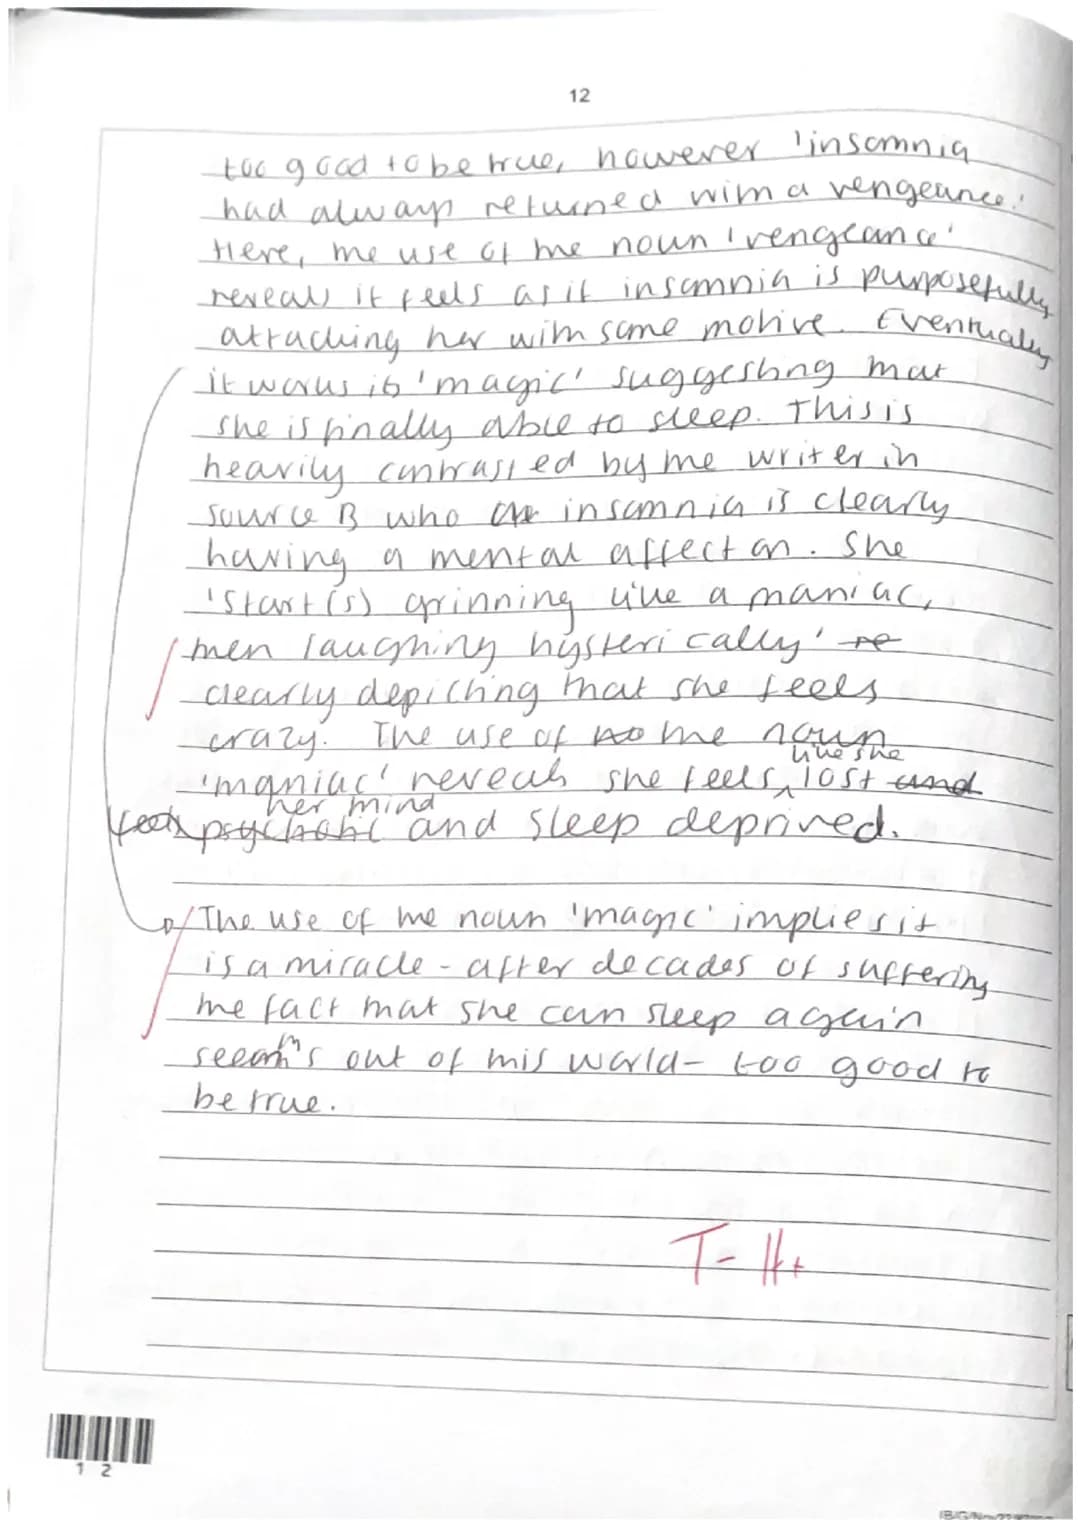 12
too good to be true, however 'insomnia
had always returned with a vengeance.'
Here, the use of the noun 'vengeance'
reveals it feels as if insomnia is purposefully
attacking her with some motive. Eventually
it works its 'magic' suggesting that
she is finally able to sleep. This is
heavily contrasted by the writer in
source B who insomnia is clearly
having a mental affect on. She
'start(s) grinning like a maniac,
then laughing hysterically' re
clearly depicting that she feels
crazy. The use of no the noun
like she
'maniac' reveals she feels lost and
her mind
feels psychotic and sleep deprived.
The use of the noun 'magic' implies it
is a miracle - after decades of suffering
the fact that she can sleep again
seems out of this world - too good to
be true.
T- H+
1 2